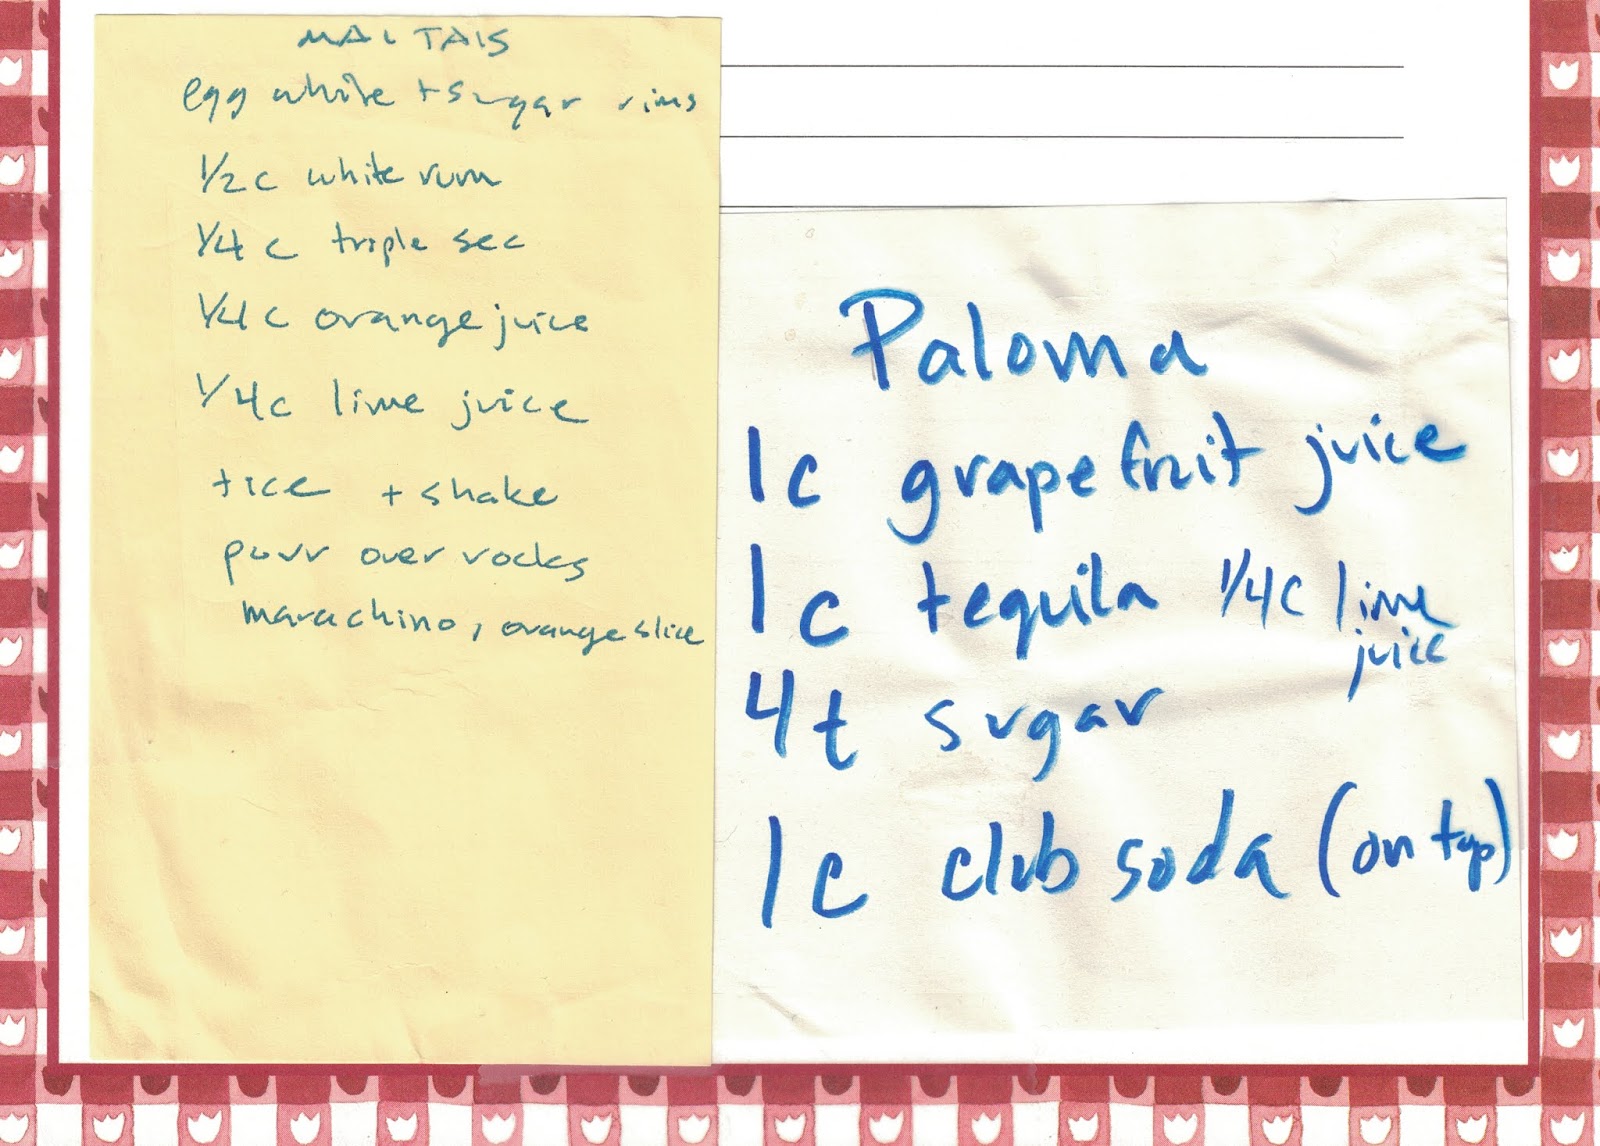 MAI TAIS
egg white + sugar rims
1/2 c white rum
1/4 c triple sec
1/4 c orange juice
1/4 c lime juice
+ ice + shake
pour over rocks
marachino, orange slice
Paloma
1c grapefruit juice
1c tequila 1/4c lime
juice
4t sugar
1c club soda (on top)